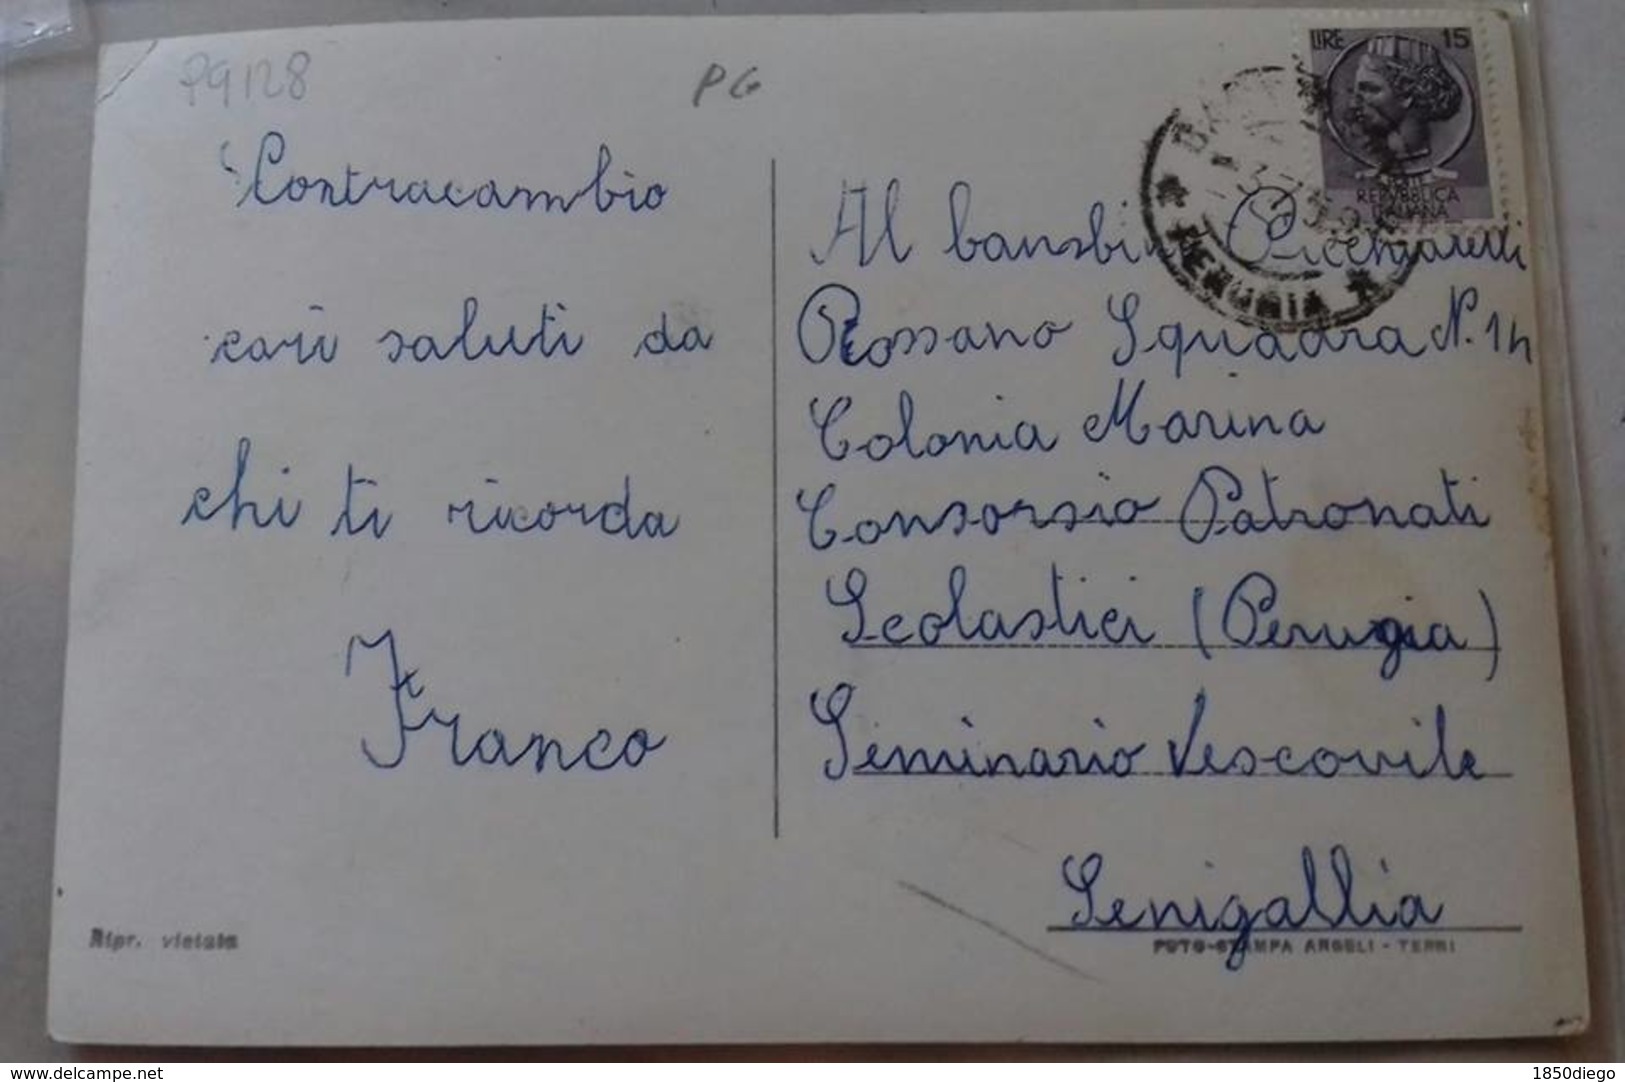 P9128
PG
LIRE 15
POSTE
REPVBBLICA
ITALIANA
PERUGIA
Contracambio
cari saluti da
chi ti ricorda
Franco
Al bambino Picchiarelli
Rossano Squadra N. 14
Colonia Marina
Consorsio Patronati
Scolastici (Perugia)
Seminario Vescovile
Senigallia
Ripr. vietata
FOTO-STAMPA ANGELI - TERNI
www.delcampe.net
1850diego